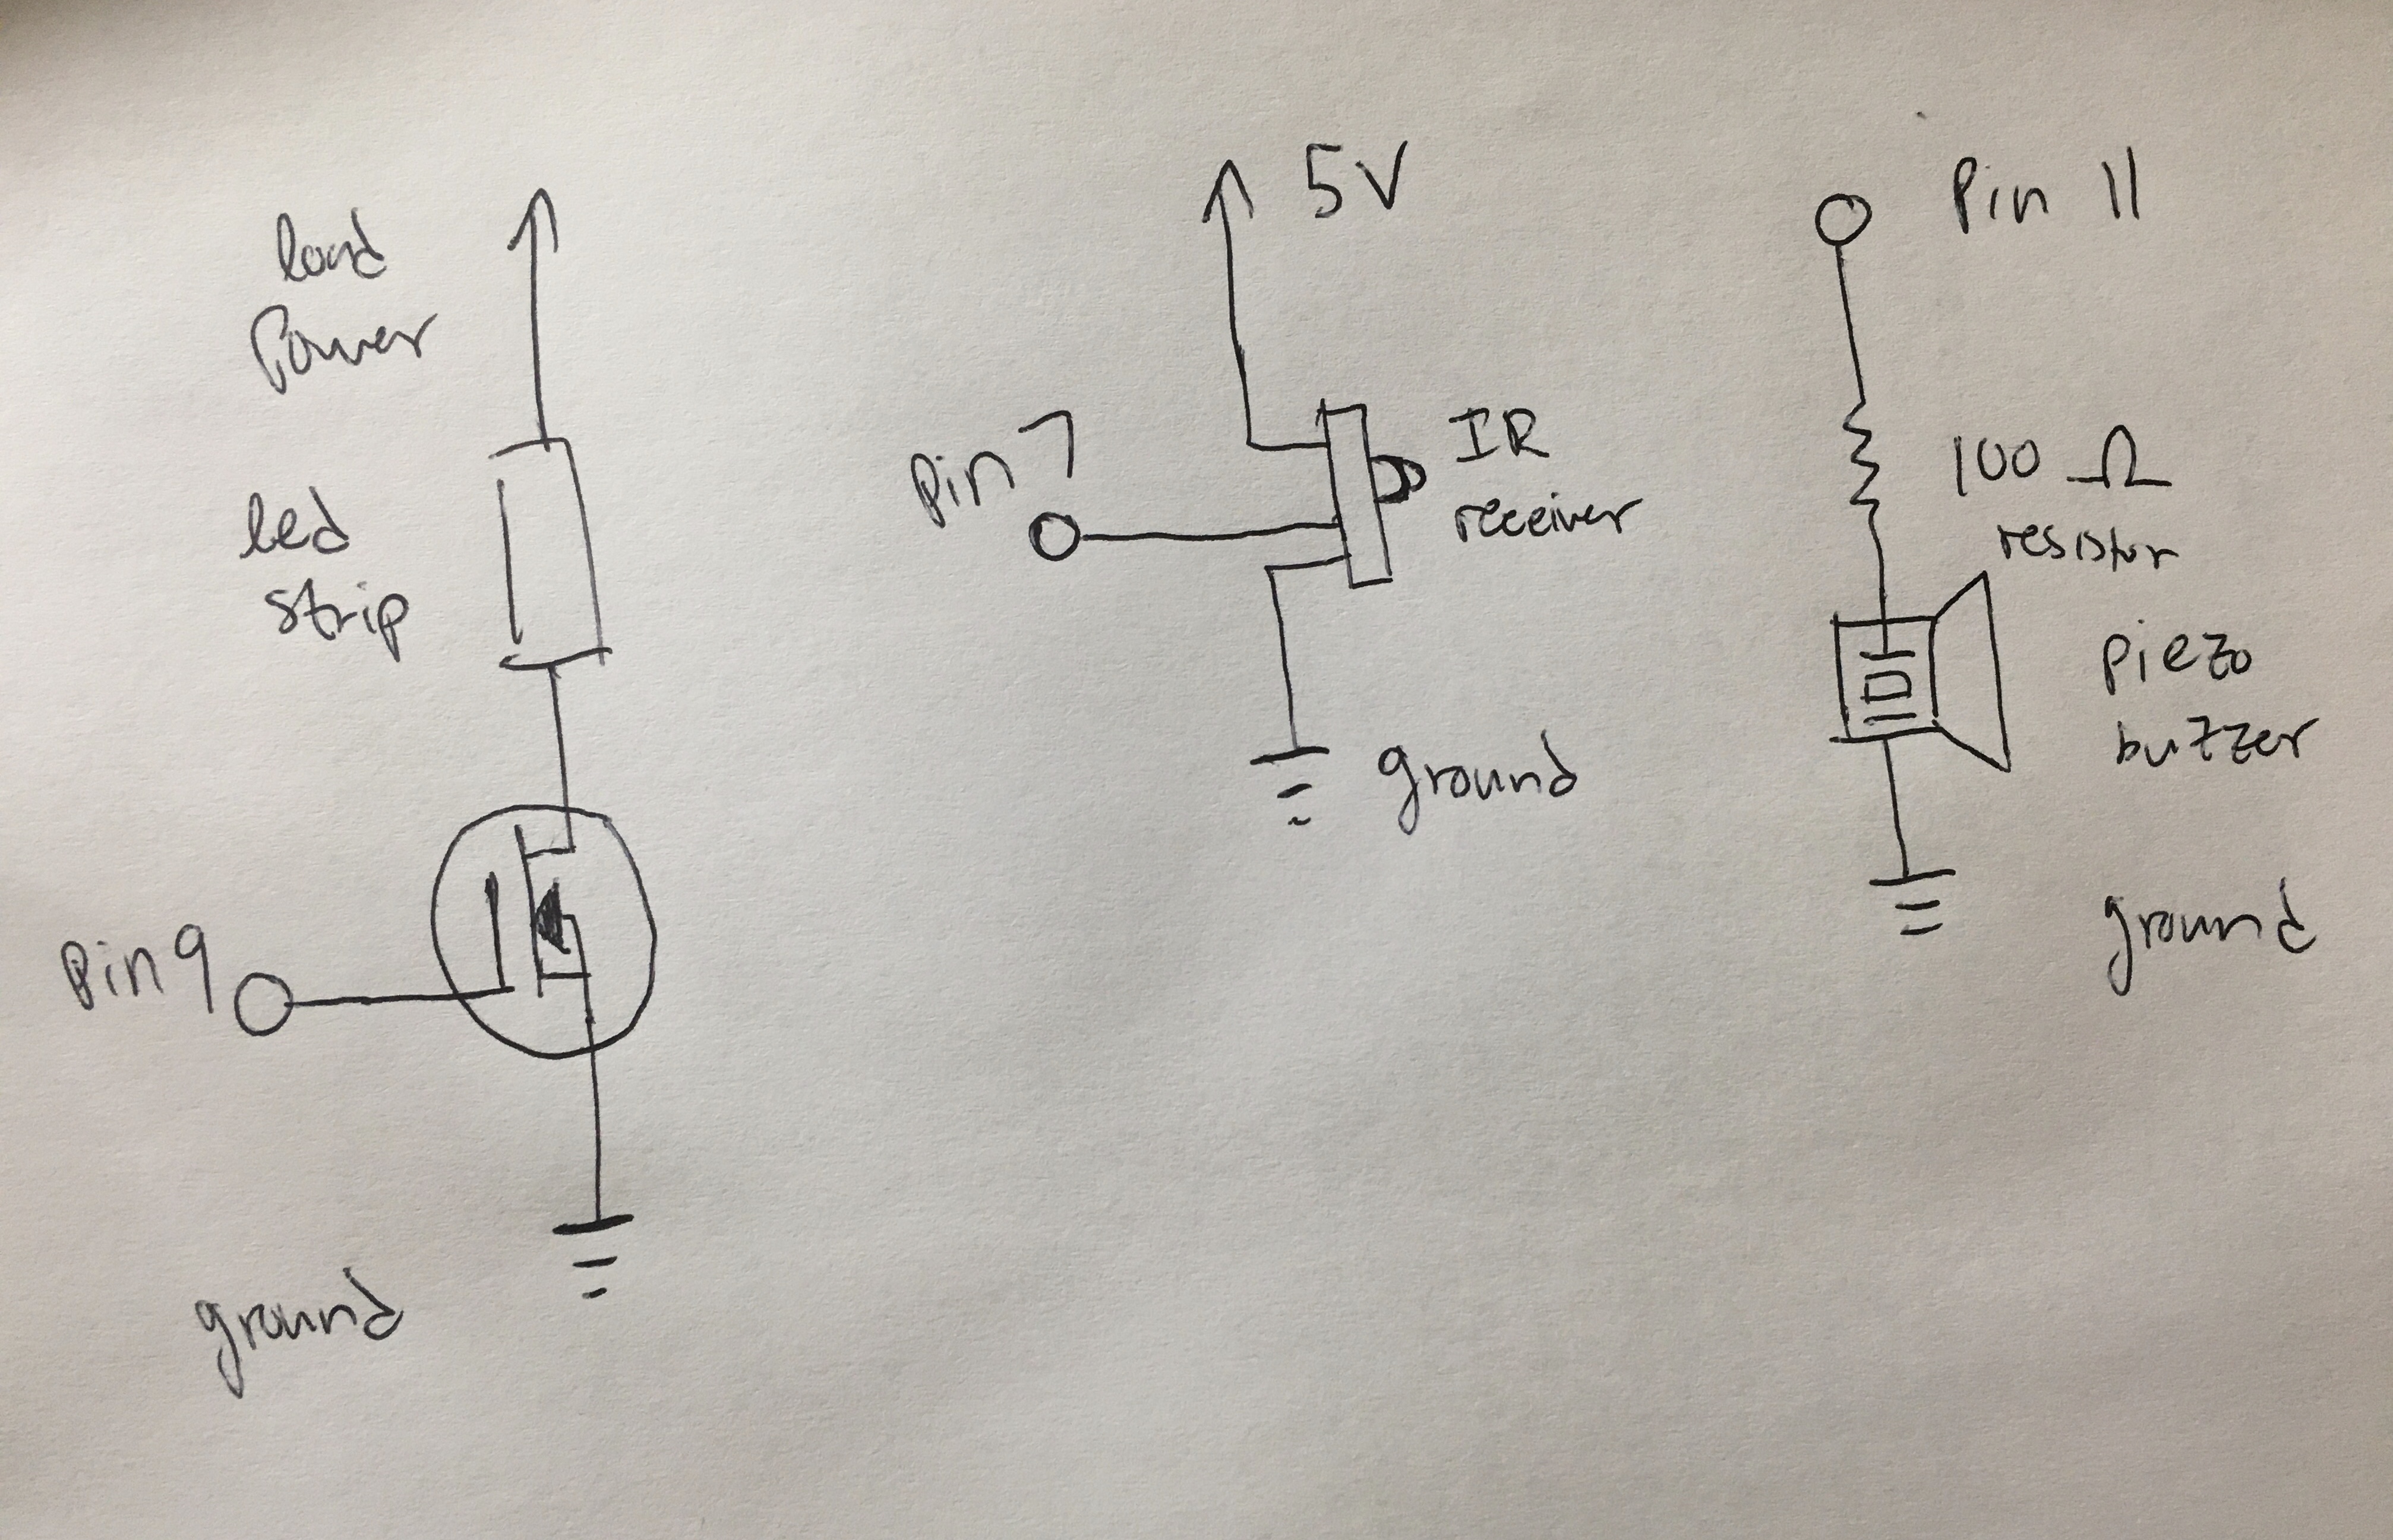 load
Power
led
strip
Pin 9
ground
5V
Pin 7
IR
receiver
ground
Pin 11
100 Ω
resistor
piezo
buzzer
ground